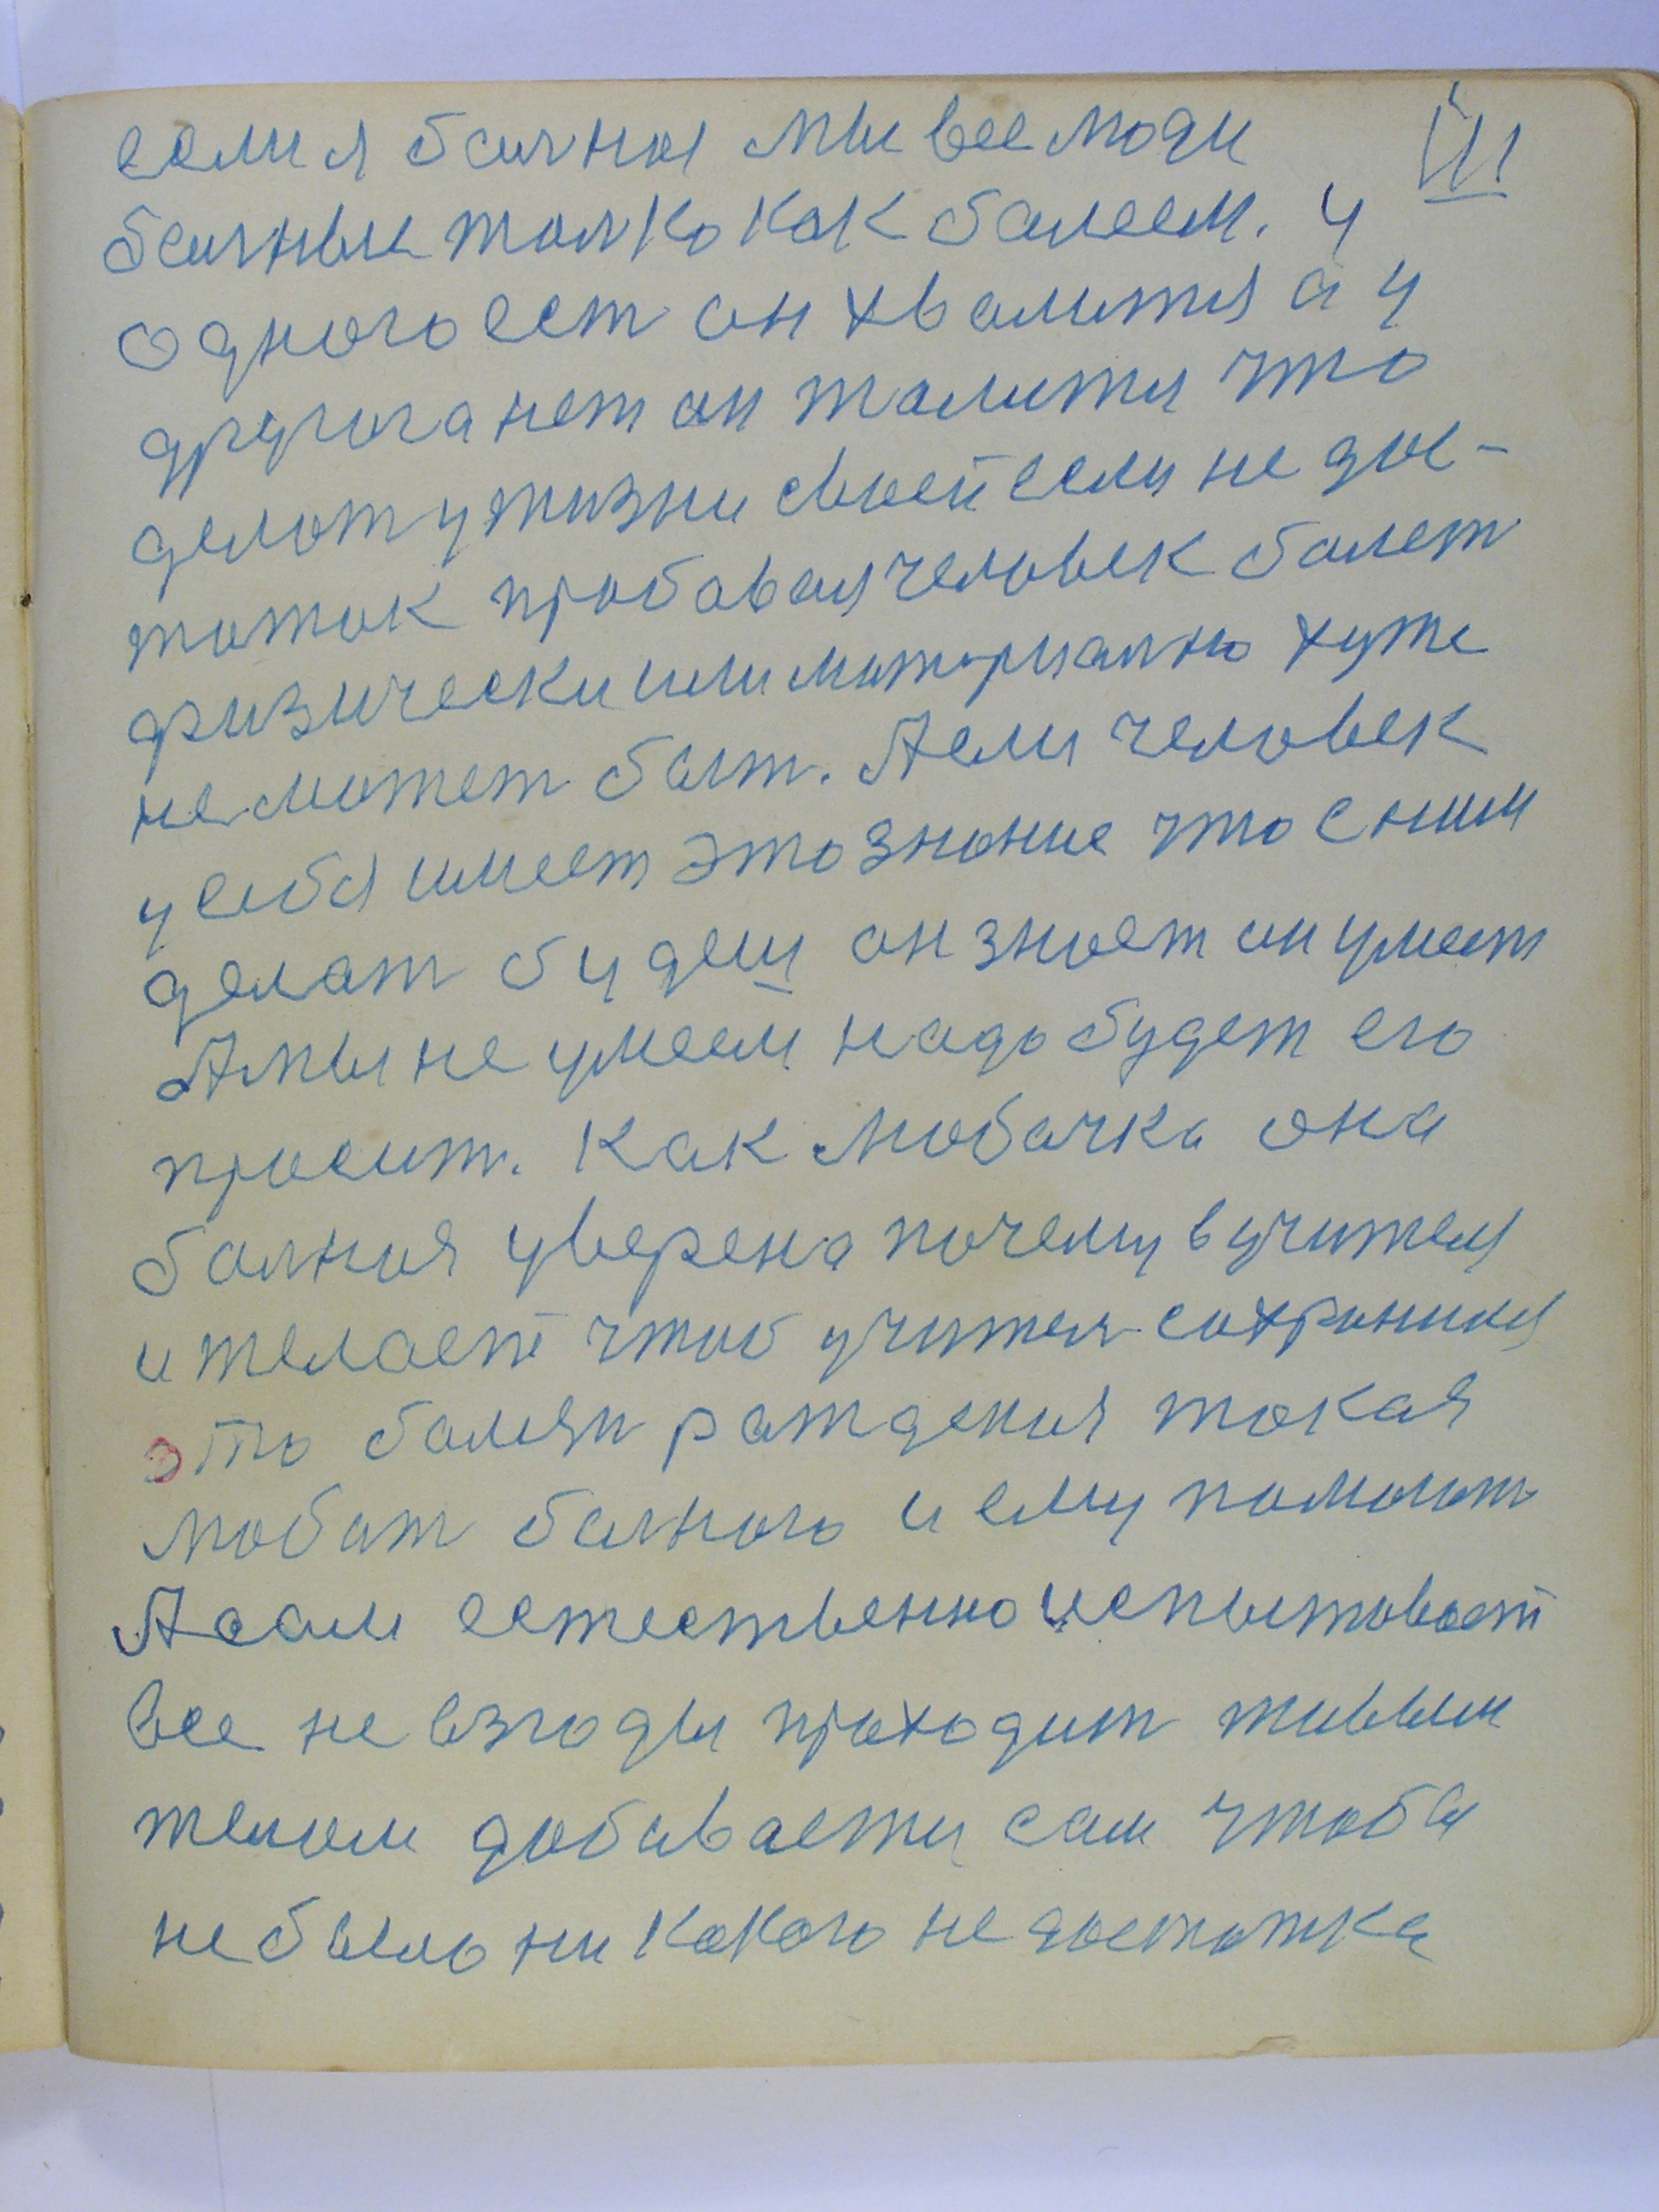 если я балная мы все люди III
балные толко как балеем. у
одного ест он хвалится а у
другога нет он жалится что
делат у жизни своей если не дос-
таток прабавал человек балет
физически или маториално хуже
не может быт. А если человек
у себя имеет это знание что с ним
делат будеш он знает он умеет
А мы не умеем надо будет его
просит. Как Любачка она
балная уверена почему в учителя
и желает чтоб учител сохранился
это балезн рождения такая
любит балного и ему помогат
А сам естественно испытовает
все не взгоды проходит живым
телом добивается сам чтобы
не было ни какого не достатка